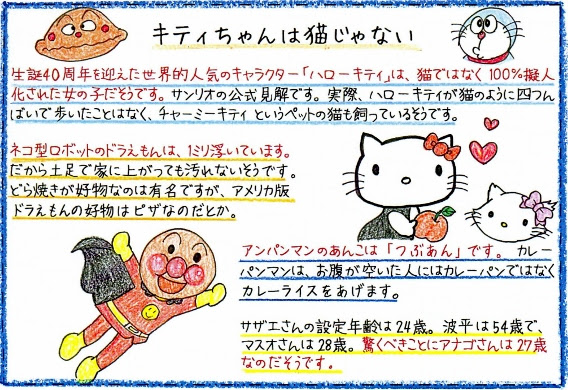 キティちゃんは猫じゃない
生誕40周年を迎えた世界的人気のキャラクター「ハローキティ」は、猫ではなく100%擬人
化された女の子だそうです。サンリオの公式見解です。実際、ハローキティが猫のように四つん
ばいで歩いたことはなく、チャーミーキティというペットの猫も飼っているそうです。
ネコ型ロボットのドラえもんは、3ミリ浮いています。
だから土足で家に上がっても汚れないそうです。
どら焼きが好物なのは有名ですが、アメリカ版
ドラえもんの好物はピザなのだとか。
アンパンマンのあんこは「つぶあん」です。カレー
パンマンは、お腹が空いた人にはカレーパンではなく
カレーライスをあげます。
サザエさんの設定年齢は24歳。波平は54歳で、
マスオさんは28歳。驚くべきことにアナゴさんは27歳
なのだそうです。